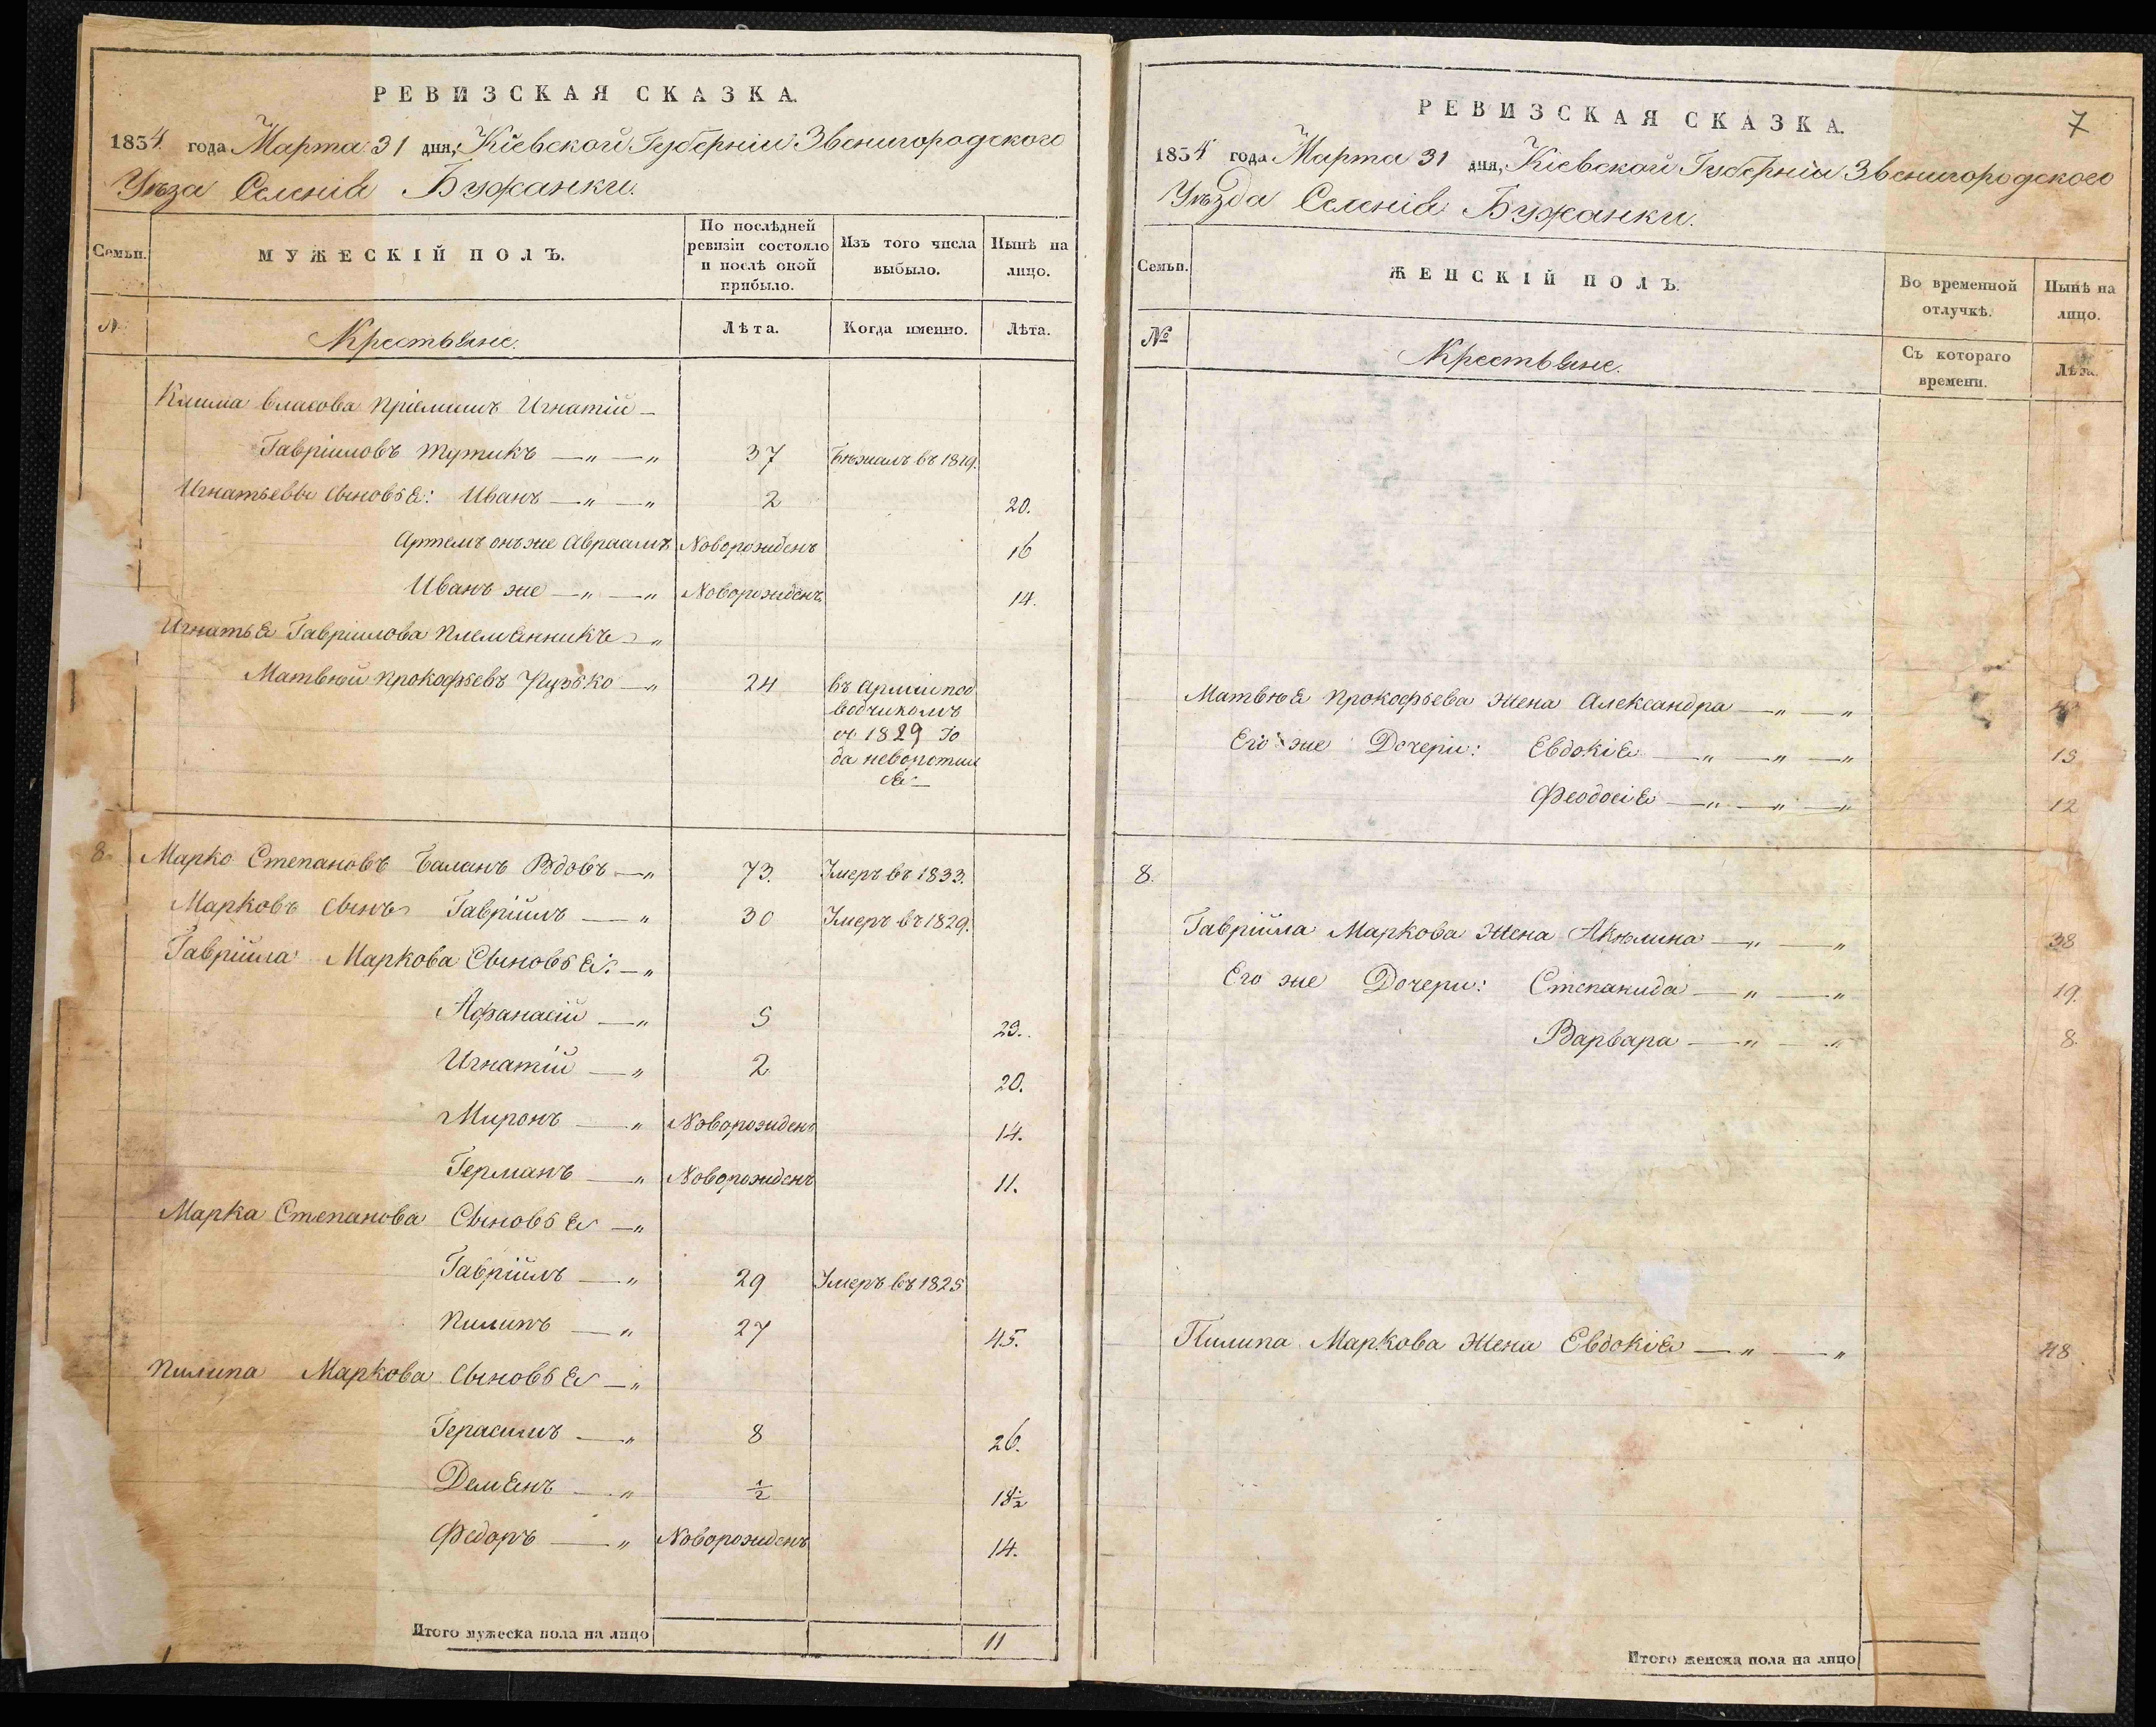 РЕВИЗСКАЯ СКАЗКА.
1834 года Марта 31 дня, Кіевской Губерніи Звенигородского
Уѣза Селенія Бужанки.
Семьи.
МУЖЕСКІЙ ПОЛЪ.
По послѣдней ревизіи состояло и послѣ оной прибыло.
Изъ того числа выбыло.
Нынѣ на лицо.
№
Крестьяне.
Лѣта.
Когда именно.
Лѣта.
Клима Власова пріемышъ Игнатій —
Гавріиловъ Тутикъ — „ — „ 37 Бѣжалъ въ 1819.
Игнатьевы сыновья: Иванъ — „ — „ 2 20.
Артемъ онъ же Авраамъ Новорожденъ 16
Иванъ же — „ — „ Новорожденъ 14.
Игнатья Гавріилова племянникъ — „
Матвѣй Прокофьевъ — „ 24 въ арміи под
водчикомъ
съ 1829 го
да неворотил
ся —
8. Марко Степановъ Баланъ Вдовъ — „ 73. Умеръ въ 1833.
Марковъ сынъ Гавріилъ — „ 30 Умеръ въ 1829.
Гавріила Маркова Сыновья: — „
Афанасій — „ 5 23.
Игнатій — „ 2 20.
Миронъ — „ Новорожденъ 14.
Германъ — „ Новорожденъ 11.
Марка Степанова Сыновья — „
Гавріилъ — „ 29 Умеръ въ 1825
Пилипъ — „ 27 45.
Пилипа Маркова Сыновья — „
Герасимъ — „ 8 26.
Демянъ — „ ½ 18½
Федоръ — „ Новорожденъ 14.
Итого мужеска пола на лицо 11
7
РЕВИЗСКАЯ СКАЗКА.
1834 года Марта 31 дня, Кіевской Губерніи Звенигородского
Уѣзда Селенія Бужанки.
Семьи.
ЖЕНСКІЙ ПОЛЪ.
Во временной отлучкѣ.
Нынѣ на лицо.
№
Крестьяне.
Съ котораго времени.
Лѣта.
Матвѣя Прокофьева жена Александра — „ — „
Его же Дочери: Евдокія — „ — „ — „ 15
Феодосія — „ — „ — „ 12
8.
Гавріила Маркова жена Акѣлина — „ — „ 38
Его же Дочери: Степанида — „ — „ 19.
Варвара — „ — „ 8.
Пилипа Маркова жена Евдокія — „ — „ 48
Итого женска пола на лицо